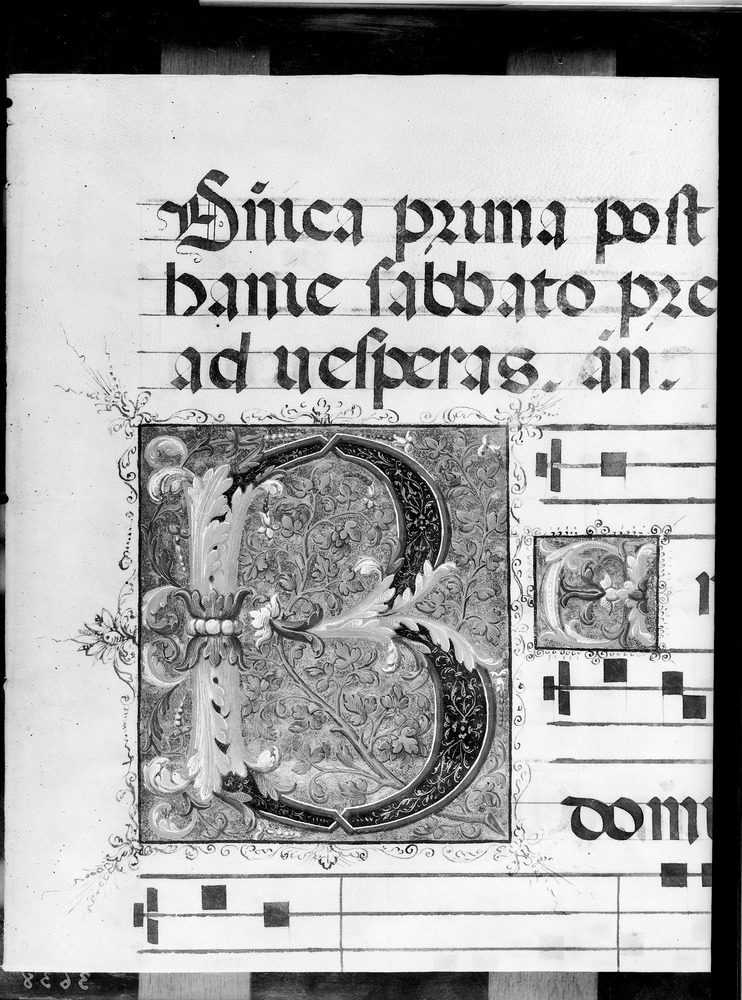 Dñica prima post
hanie sabbato pre
ad uesperas. añ.
B E
domi
3638